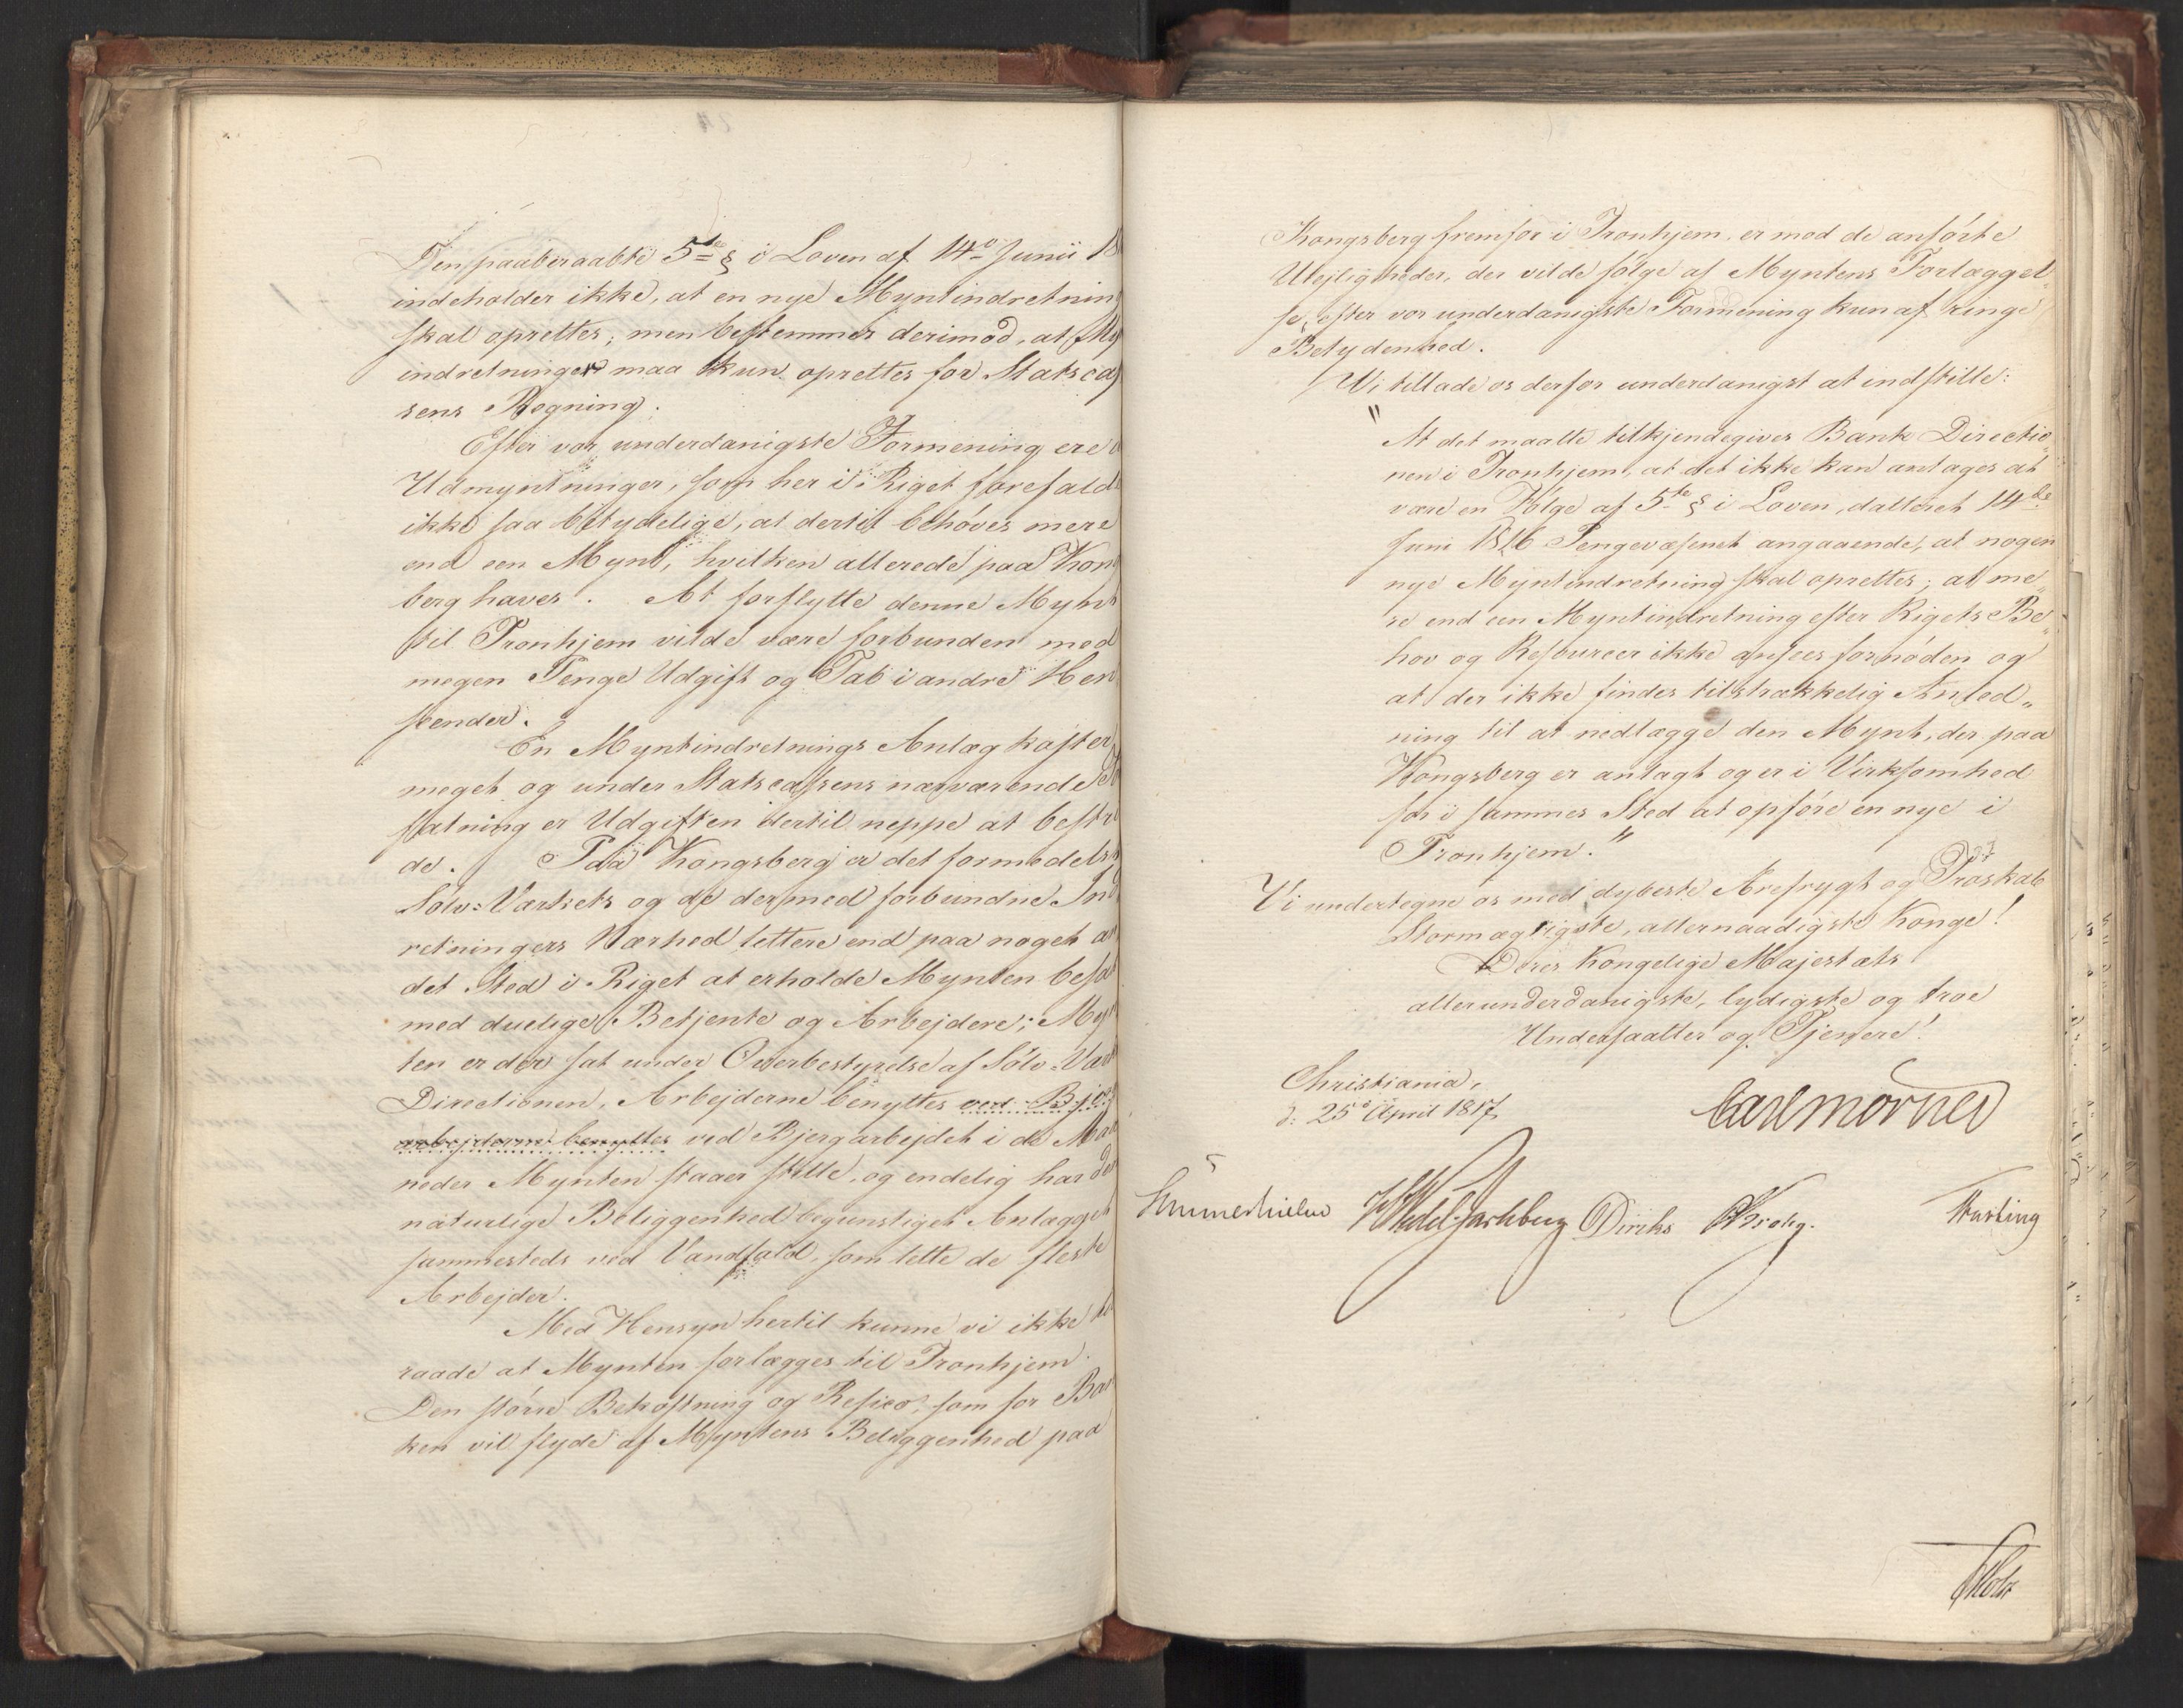 Den paaberaabte 5te § i Loven af 14de Junii 18
indeholder ikke, at en nye Myntindretning
skal oprettes; men bestemmer derimod, at My
indretninger maa kun oprettes for Statscas
sens Regning.
Efter vor underdanigste Formening ere
Udmyntninger, som her i Riget forefalde
ikke saa betydelige, at dertil behøves mere
end een Mynt, hvilken allerede paa Kongs
berg haves. At forflytte denne Mynt
til Tronhjem vilde være forbunden med
megen Penge Udgift og Tab i andre Hen
seender.
En Myntindretnings Anlæg koster
meget og under Statscassens nærværende
fatning er Udgiften dertil neppe at bestri
de. Paa Kongsberg er det formedelst
Sølv-Værkets og de dermed forbundne Ind
retningers Nærhed lettere end paa noget an
det Sted i Riget at erholde Mynten besat
med duelige Betjente og Arbejdere; Myn
ten er der sat under Overbestyrelse af Sølv-Værk
Directionen, Arbejderne benyttes ved Bjerg
arbejderne benyttes ved Bjergarbejdet i de Maa
neder Mynten staaer stille, og endelig har den
naturlige Beliggenhed begunstiget Anlægget
sammesteds ved Vandfald, som lette de fleste
Arbejder.
Med Hensyn hertil kunne vi ikke til
raade at Mynten forlægges til Tronhjem.
Den større Bekostning og Resico, som for Ban
ken vil flyde af Myntens Beliggenhed paa
Kongsberg fremfor i Tronhjem, er mod de anførte
Ulejligheder, der vilde følge af Myntens Forlæggel„
se, efter vor underdanigste Formening kun af ringe
Betydenhed.
Vi tillade os derfor underdanigst at indstille:
"At det maatte tilkjendegives Bank Directio„
nen i Tronhjem, at det ikke kan antages at
være en Følge af 5te § i Loven, datteret 14de
Juni 1816 Pengevæsenet angaaende, at nogen
nye Myntindretning skal oprettes; at me„
re end een Myntindretning efter Rigets Be„
hov og Resourcer ikke ansees fornøden og
at der ikke findes tilstrækkelig Anled„
ning til at nedlægge den Mynt, der paa
Kongsberg er anlagt og er i Virksomhed
for i sammes Sted at opføre en nye i
Tronhjem."
Vi undertegne os med dybeste Ærefrygt og Troskab
Stormægtigste, allernaadigste Konge!
Deres Kongelige Majestæts
allerunderdanigste, lydigste og troe
Undersaatter og Tjenere!
Christiania,
d: 25de April 1817,
Carl Mörner
Sommerhielm H Wedel Jarlsberg Diriks Krohg.
Holst